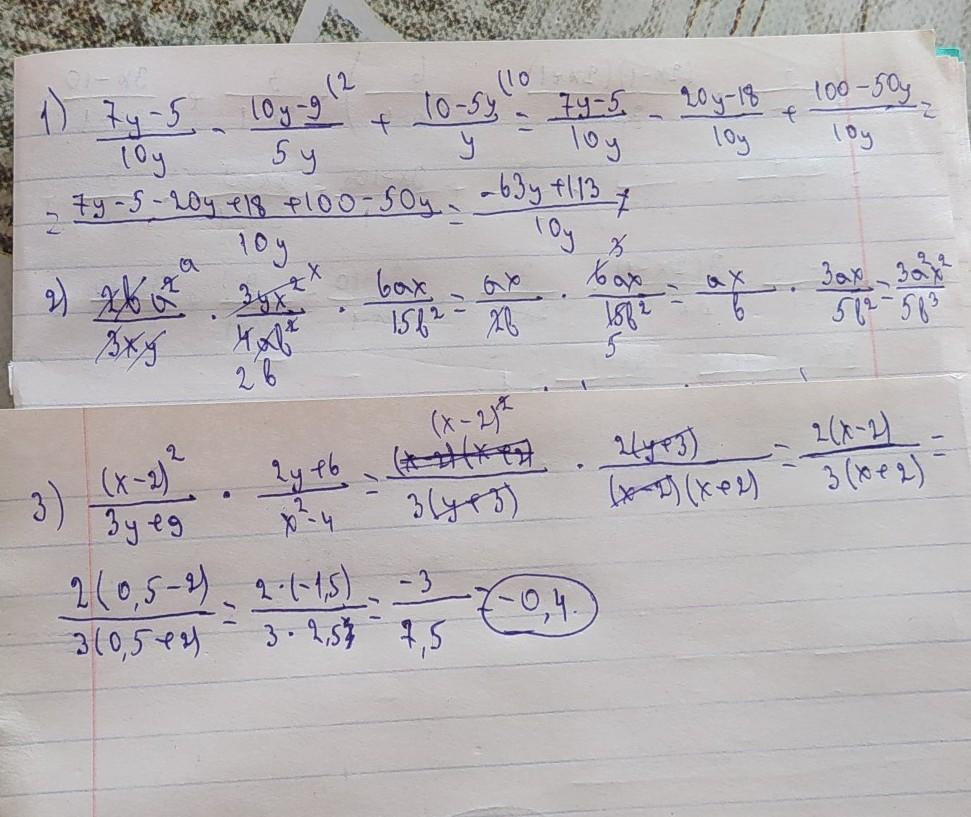 1) (7y-5)/(10y) - (10y-9)/(5y) (2 + (10-5y)/y (10 = (7y-5)/(10y) - (20y-18)/(10y) + (100-50y)/(10y) =
= (7y-5-20y+18+100-50y)/(10y) = (-63y+113)/(10y)
2) (2ba²)/(3xy) a · (3yx²)/(4ab²) x 2b · (6ax)/(15b²) = (ax)/(2b) · (6ax)/(15b²) 3 5 = (ax)/b · (3ax)/(5b²) = (3a²x²)/(5b³)
3) (x-2)²/(3y+9) · (2y+6)/(x²-4) = (x-2)²/(3(y+3)) · (2(y+3))/((x-2)(x+2)) = (2(x-2))/(3(x+2)) =
(2(0,5-2))/(3(0,5+2)) = (2·(-1,5))/(3·2,5) = (-3)/(7,5) = -0,4.